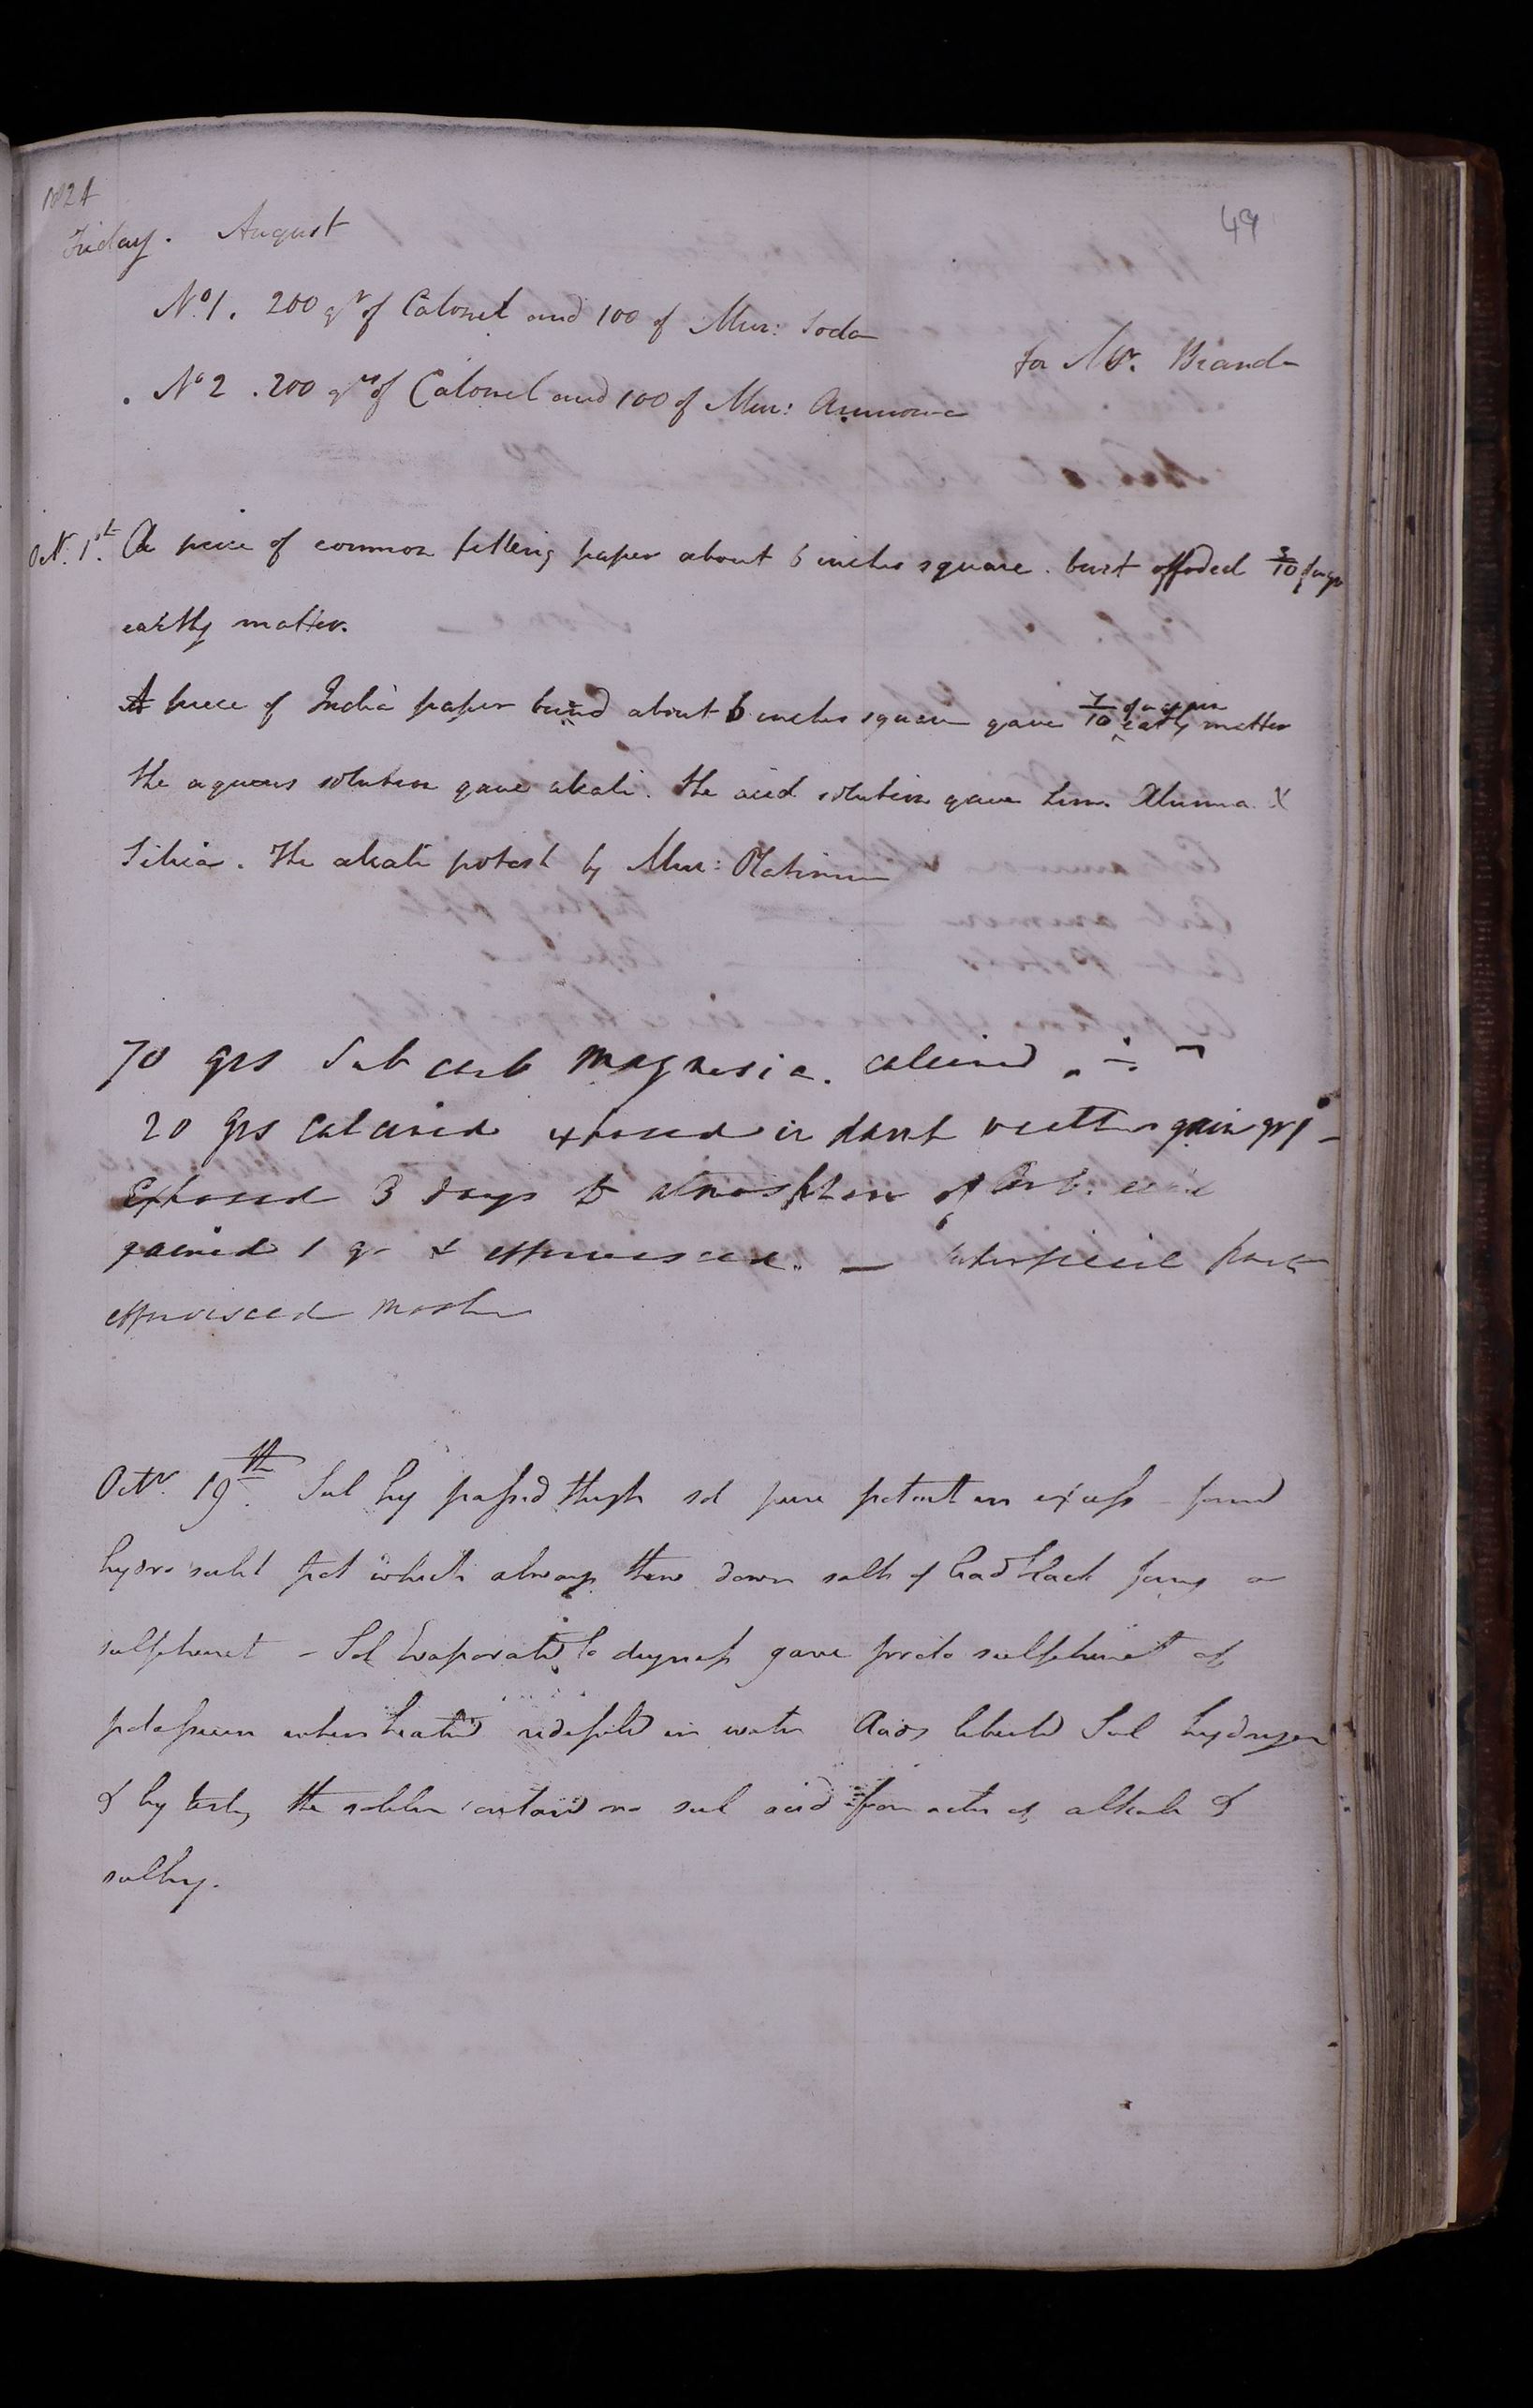 1824
49
Friday. August
No 1. 200 grs of Calomel and 100 of Mur: Soda
for Mr. Brande
No 2. 200 grs of Calomel and 100 of Mur: Ammonia
Octr. 1st. A piece of common filtering paper about 6 inches square. burnt afforded 3/10 of a gr
earthy matter.
A piece of India paper burnd about 6 inches square gave 7/10 of a grain earthy matter
the aqueous solution gave alkali. the acid solution gave Lime Alumina &
Silica. The alkali potash by Mur: Platinum
70 grs Sub carb Magnesia. calcined
20 grs calcined exposed in damp weather gain gr j -
Exposed 3 days to atmosphere of Carb: acid
gained 1 gr & effervesced. — superficial part
effervesced most
Octr. 19th. Sul hy passed through sol pure potash in excess - formd
hydro sulpt pot which always threw down salts of lead black formg a
sulphuret - Sol Evaporated to dryness gave proto sulphuret of
potassium when heated redissolvd in water Acids liberated Sul hydrogen
& by testg the solution containd no sul acid from actn of alkali &
sulhy.